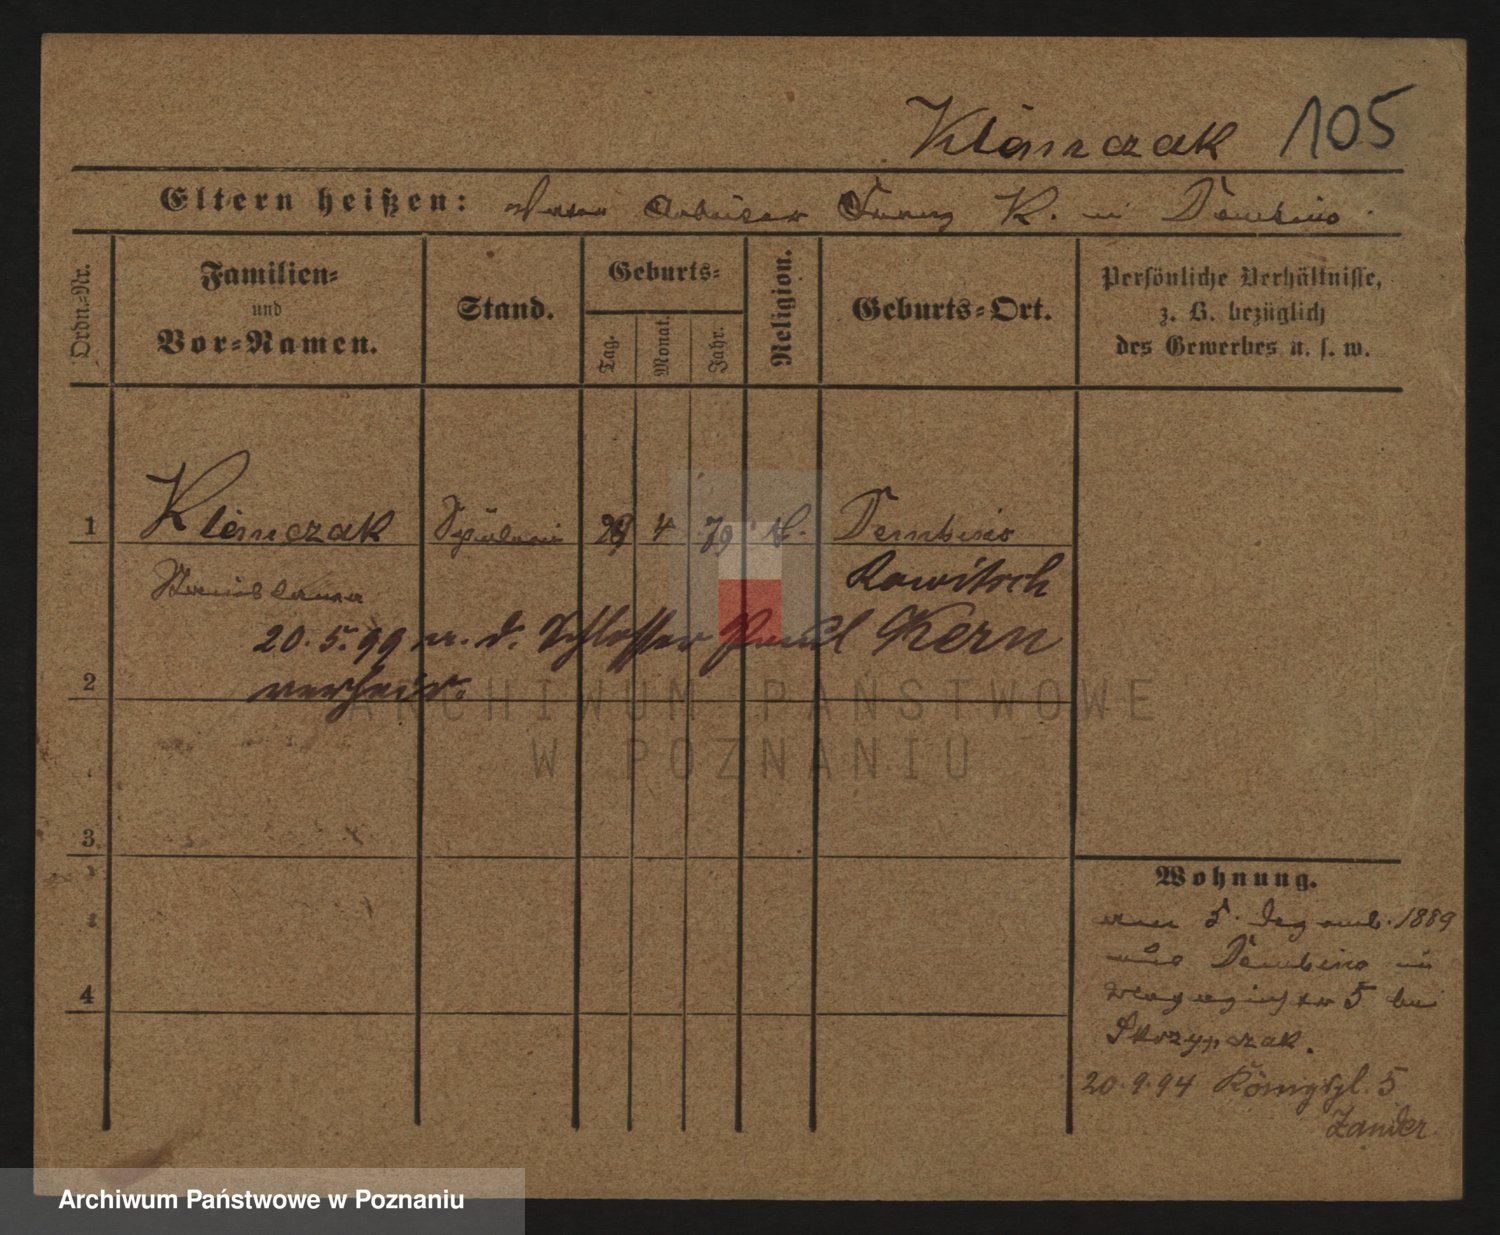 Klemczak 105
Eltern heißen: Vater Arbeiter Franz K. in
Ordn.-Nr.
Familien-
und
Vor-Namen.
Stand.
Geburts-
Tag.
Monat.
Jahr.
Religion.
Geburts-Ort.
Persönliche Verhältnisse,
z. B. bezüglich
des Gewerbes u. s. w.
1 Klemczak 4 79 k.
Rawitsch
Stanislawa
20.5.99 m. d. Schlosser Paul Kern
2 verheir.
3
4
Wohnung.
am 5. Dezemb. 1889
aus in
5 bei
Skrzypczak.
20.9.94 Königspl. 5
Zander
ARCHIWUM PAŃSTWOWE
W POZNANIU
Archiwum Państwowe w Poznaniu